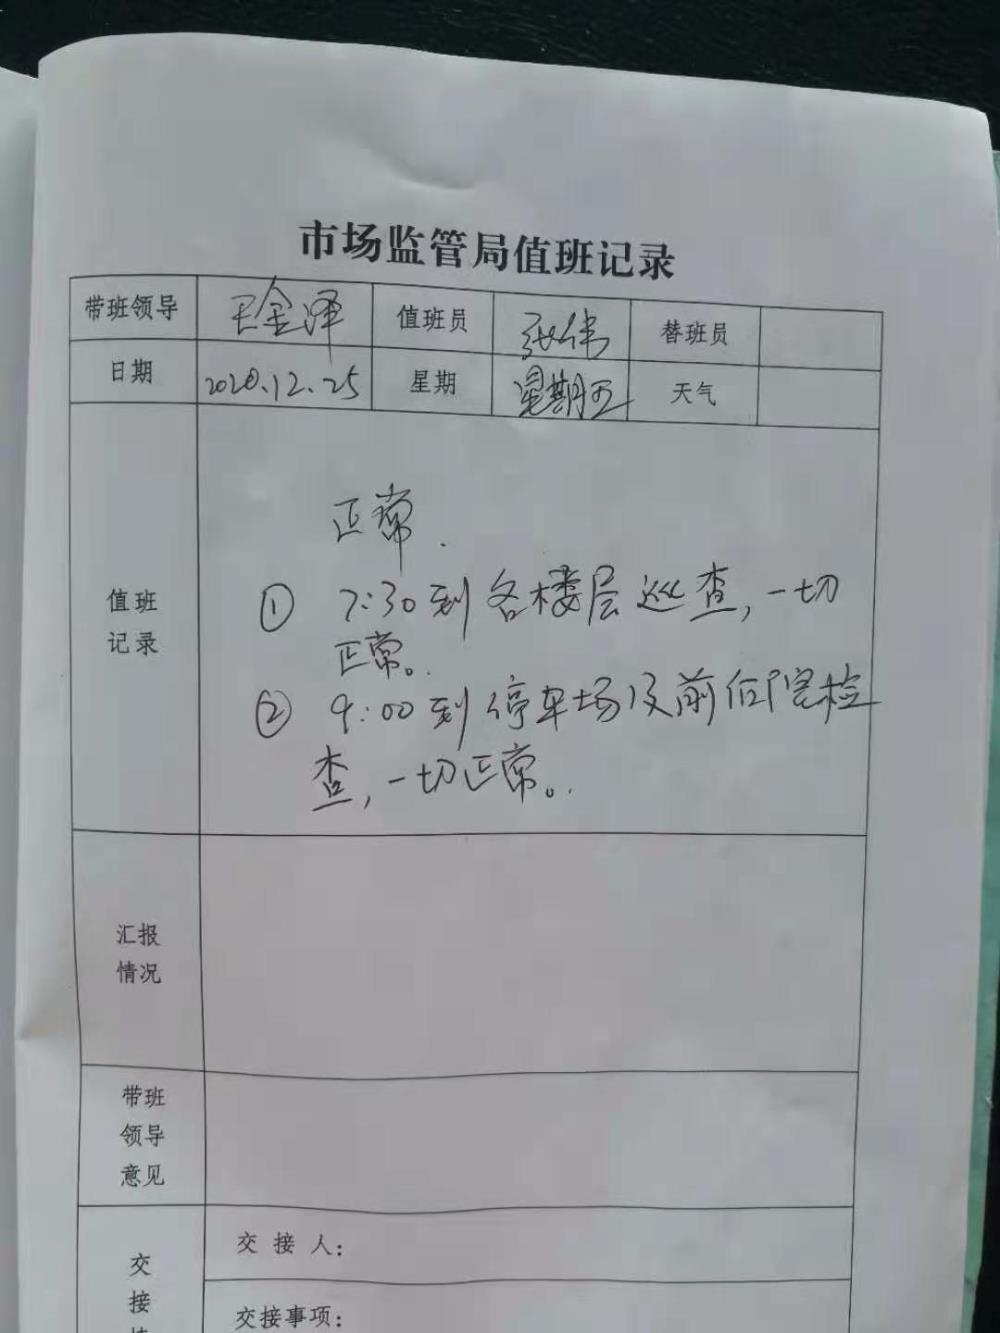 市场监管局值班记录
带班领导 王金泽 值班员 张伟 替班员
日期 2020.12.25 星期 星期五 天气
正常.
① 7:30到各楼层巡查,一切
值班
记录
正常。
② 9:00到停车场及前后院检
查,一切正常。
汇报
情况
带班
领导
意见
交接人:
交
接
交接事项: